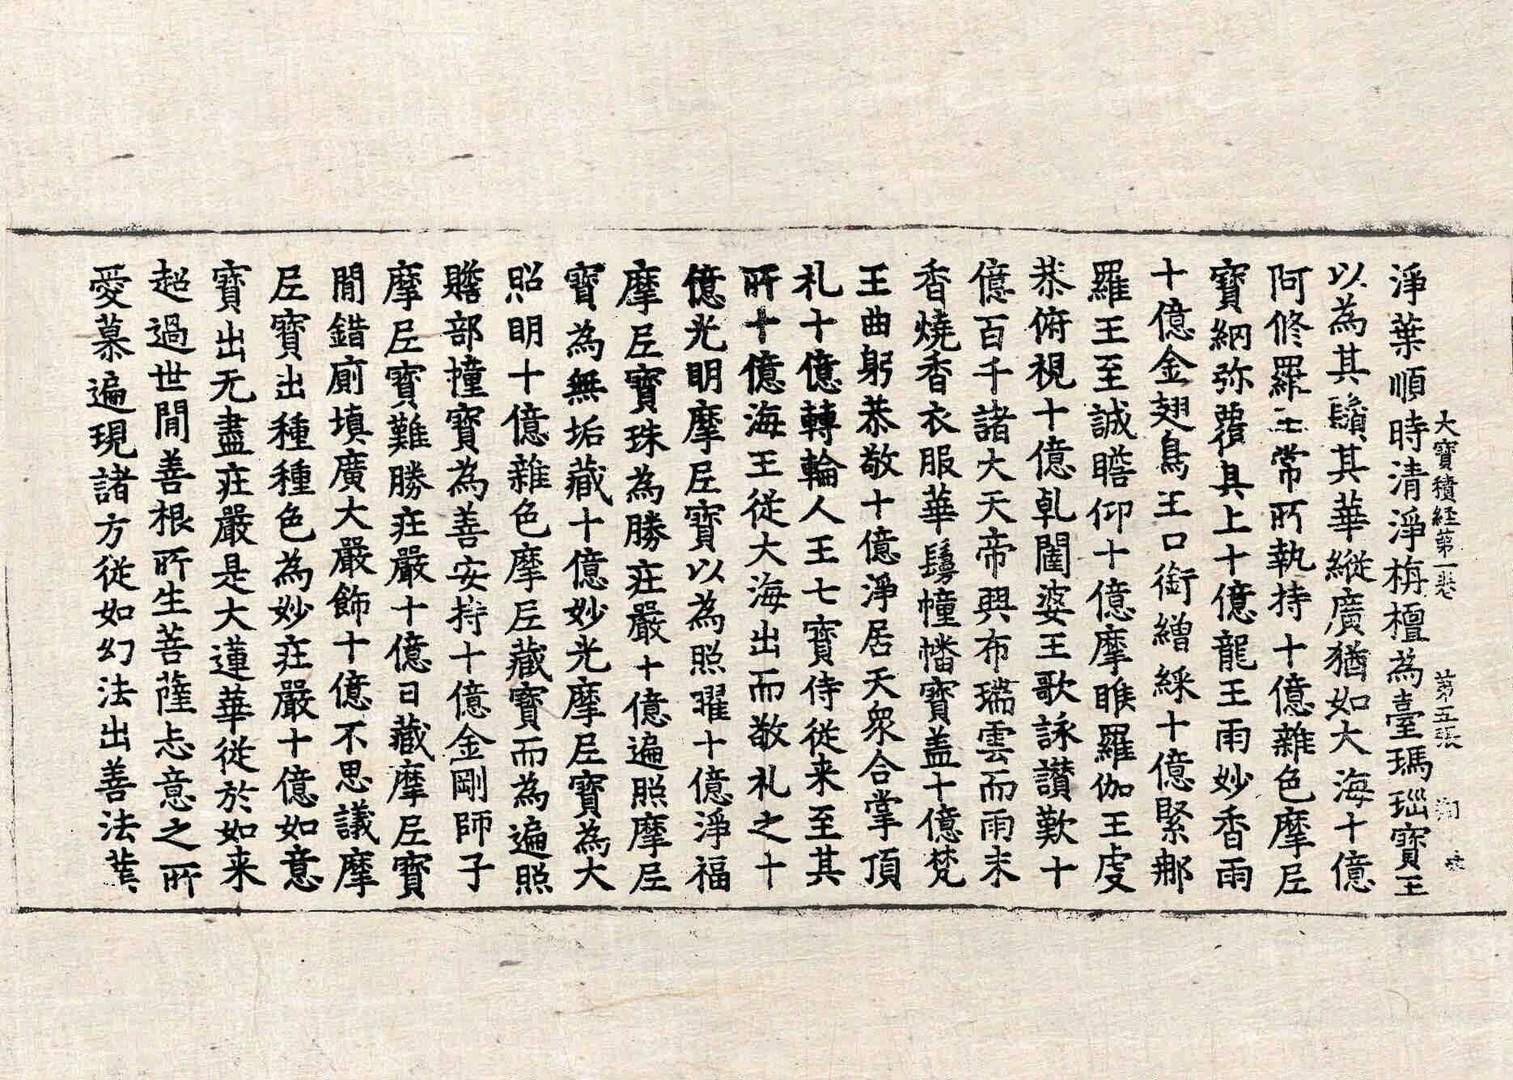 大寶積経第一卷 第五張
淨葉順時清淨栴檀為臺瑪瑙寶王
以為其鬚其華縱廣猶如大海十億
阿修羅王常所執持十億雜色摩尼
寶網弥覆其上十億龍王雨妙香雨
十億金翅鳥王口銜繒綵十億緊那
羅王至誠瞻仰十億摩睺羅伽王虔
恭俯視十億乹闥婆王歌詠讃歎十
億百千諸大天帝興布瑞雲而雨末
香燒香衣服華鬘幢幡寶盖十億梵
王曲躬恭敬十億淨居天衆合掌頂
礼十億轉輪人王七寶侍從来至其
所十億海王從大海出而敬礼之十
億光明摩尼寶以為照曜十億淨福
摩尼寶珠為勝莊嚴十億遍照摩尼
寶為無垢藏十億妙光摩尼寶為大
照明十億雜色摩尼藏寶而為遍照
贍部幢寶為善安持十億金剛師子
摩尼寶難勝莊嚴十億日藏摩尼寶
間錯廁填廣大嚴飾十億不思議摩
尼寶出種種色為妙莊嚴十億如意
寶出无盡莊嚴是大蓮華從於如来
超過世間善根所生菩薩志意之所
愛慕遍現諸方從如幻法出善法業